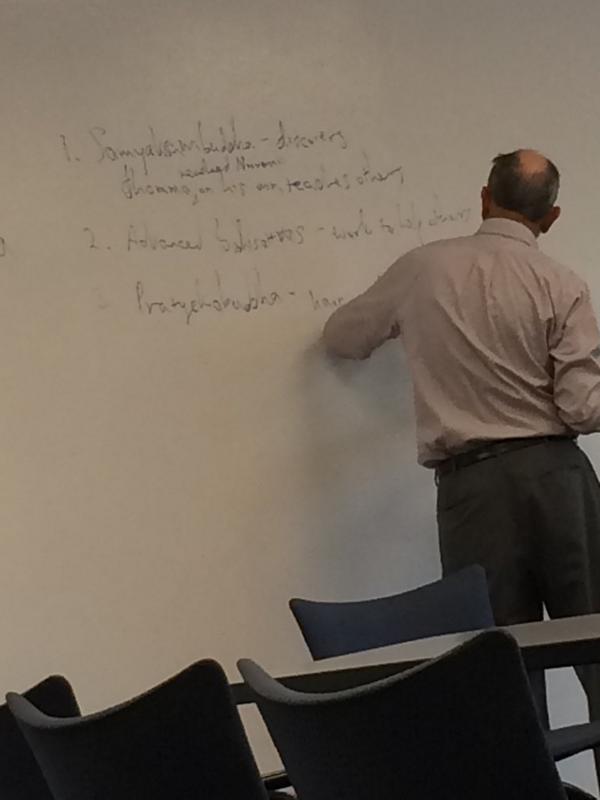 1. Samyaksambuddha - discovers
realized Nirvana
dhamma, on his own, teaches others
2. Advanced bodisattvas - work to help others
Pratyekabuddha -